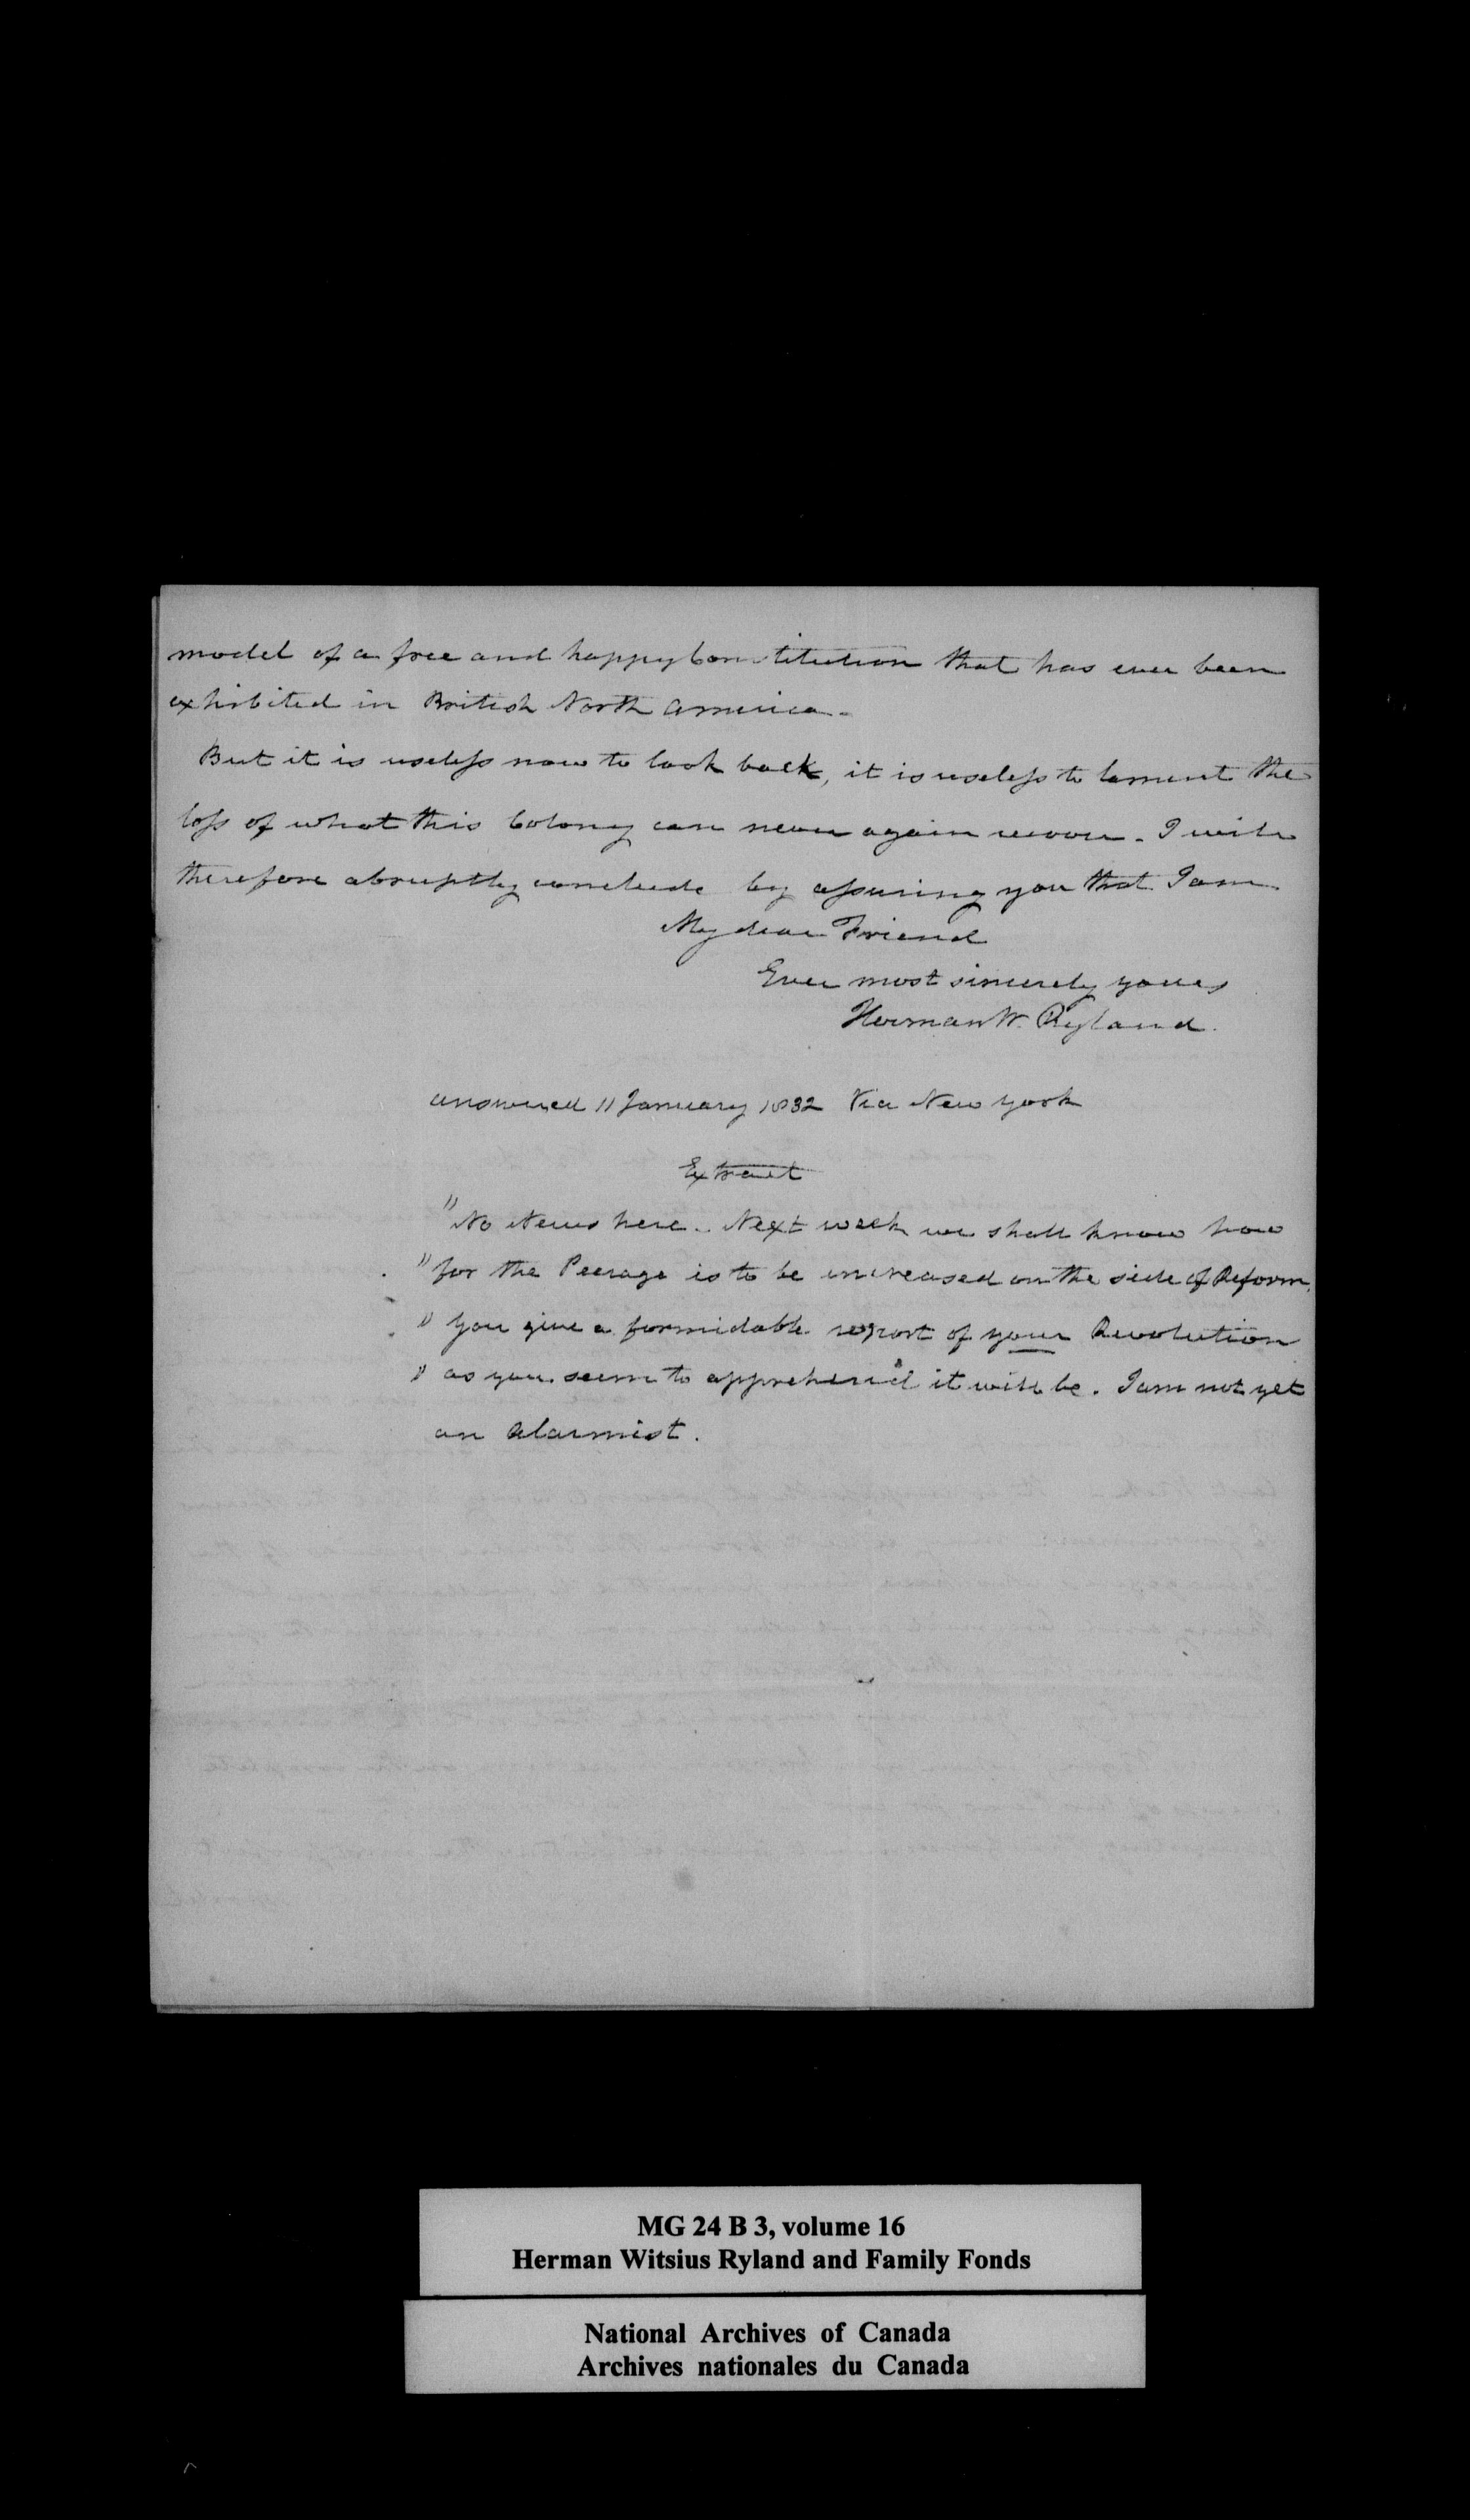 model of a free and happy Constitution that has ever been
exhibited in British North America.
But it is useless now to look back, it is useless to lament the
loss of what this Colony can never again recover. I will
therefore abruptly conclude by assuring you that I am
My dear Friend
Ever most sincerely yours
Herman W. Ryland.
answered 11 January 1832 Via New York
Extract
"No News here. Next week we shall know how
"far the Peerage is to be increased on the side of Reform.
" You give a formidable report of your Revolution
" as you seem to apprehend it will be. I am not yet
an Alarmist.
MG 24 B 3, volume 16
Herman Witsius Ryland and Family Fonds
National Archives of Canada
Archives nationales du Canada